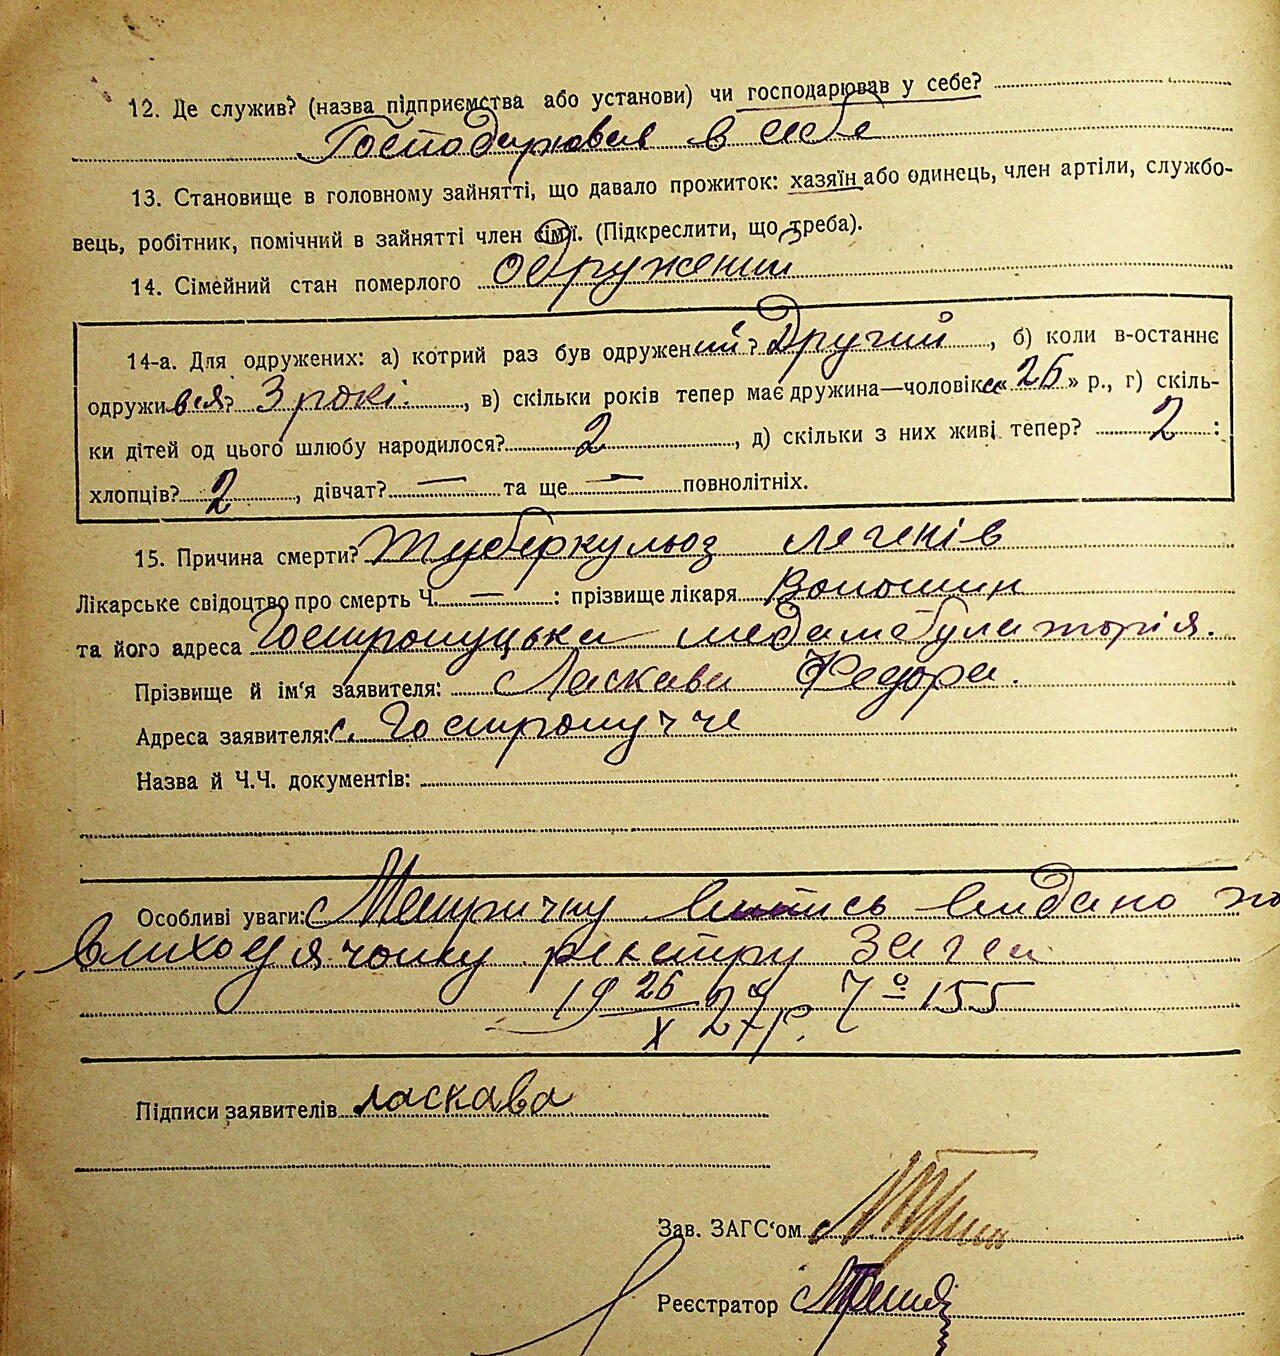 12. Де служив? (назва підприємства або установи) чи господарював у себе?
Господарював в себе
13. Становище в головному зайнятті, що давало прожиток: хазяїн або одинець, член артіли, службо-
вець, робітник, помічний в зайнятті член сім'ї. (Підкреслити, що треба).
14. Сімейний стан померлого одружений
14-а. Для одружених: а) котрий раз був одружений? Другий, б) коли в-останнє
одружився? 3 рокі., в) скільки років тепер має дружина—чоловік «26» р., г) скіль-
ки дітей од цього шлюбу народилося? 2, д) скільки з них живі тепер? 2:
хлопців? 2, дівчат? — та ще — повнолітніх.
15. Причина смерти? Туберкульоз легенів
Лікарське свідоцтво про смерть Ч. — : прізвище лікаря Волошин
та його адреса Гостролуцька медамбулаторія.
Прізвище й ім'я заявителя: Ласкава Федора.
Адреса заявителя: с. Гостролучче
Назва й Ч.Ч. документів:
Особливі уваги: Метричну випись видано по
виходячому реєстру Загса
19 26/X 27р. № 155
Підписи заявителів ласкава
Зав. ЗАГС'ом
Реєстратор